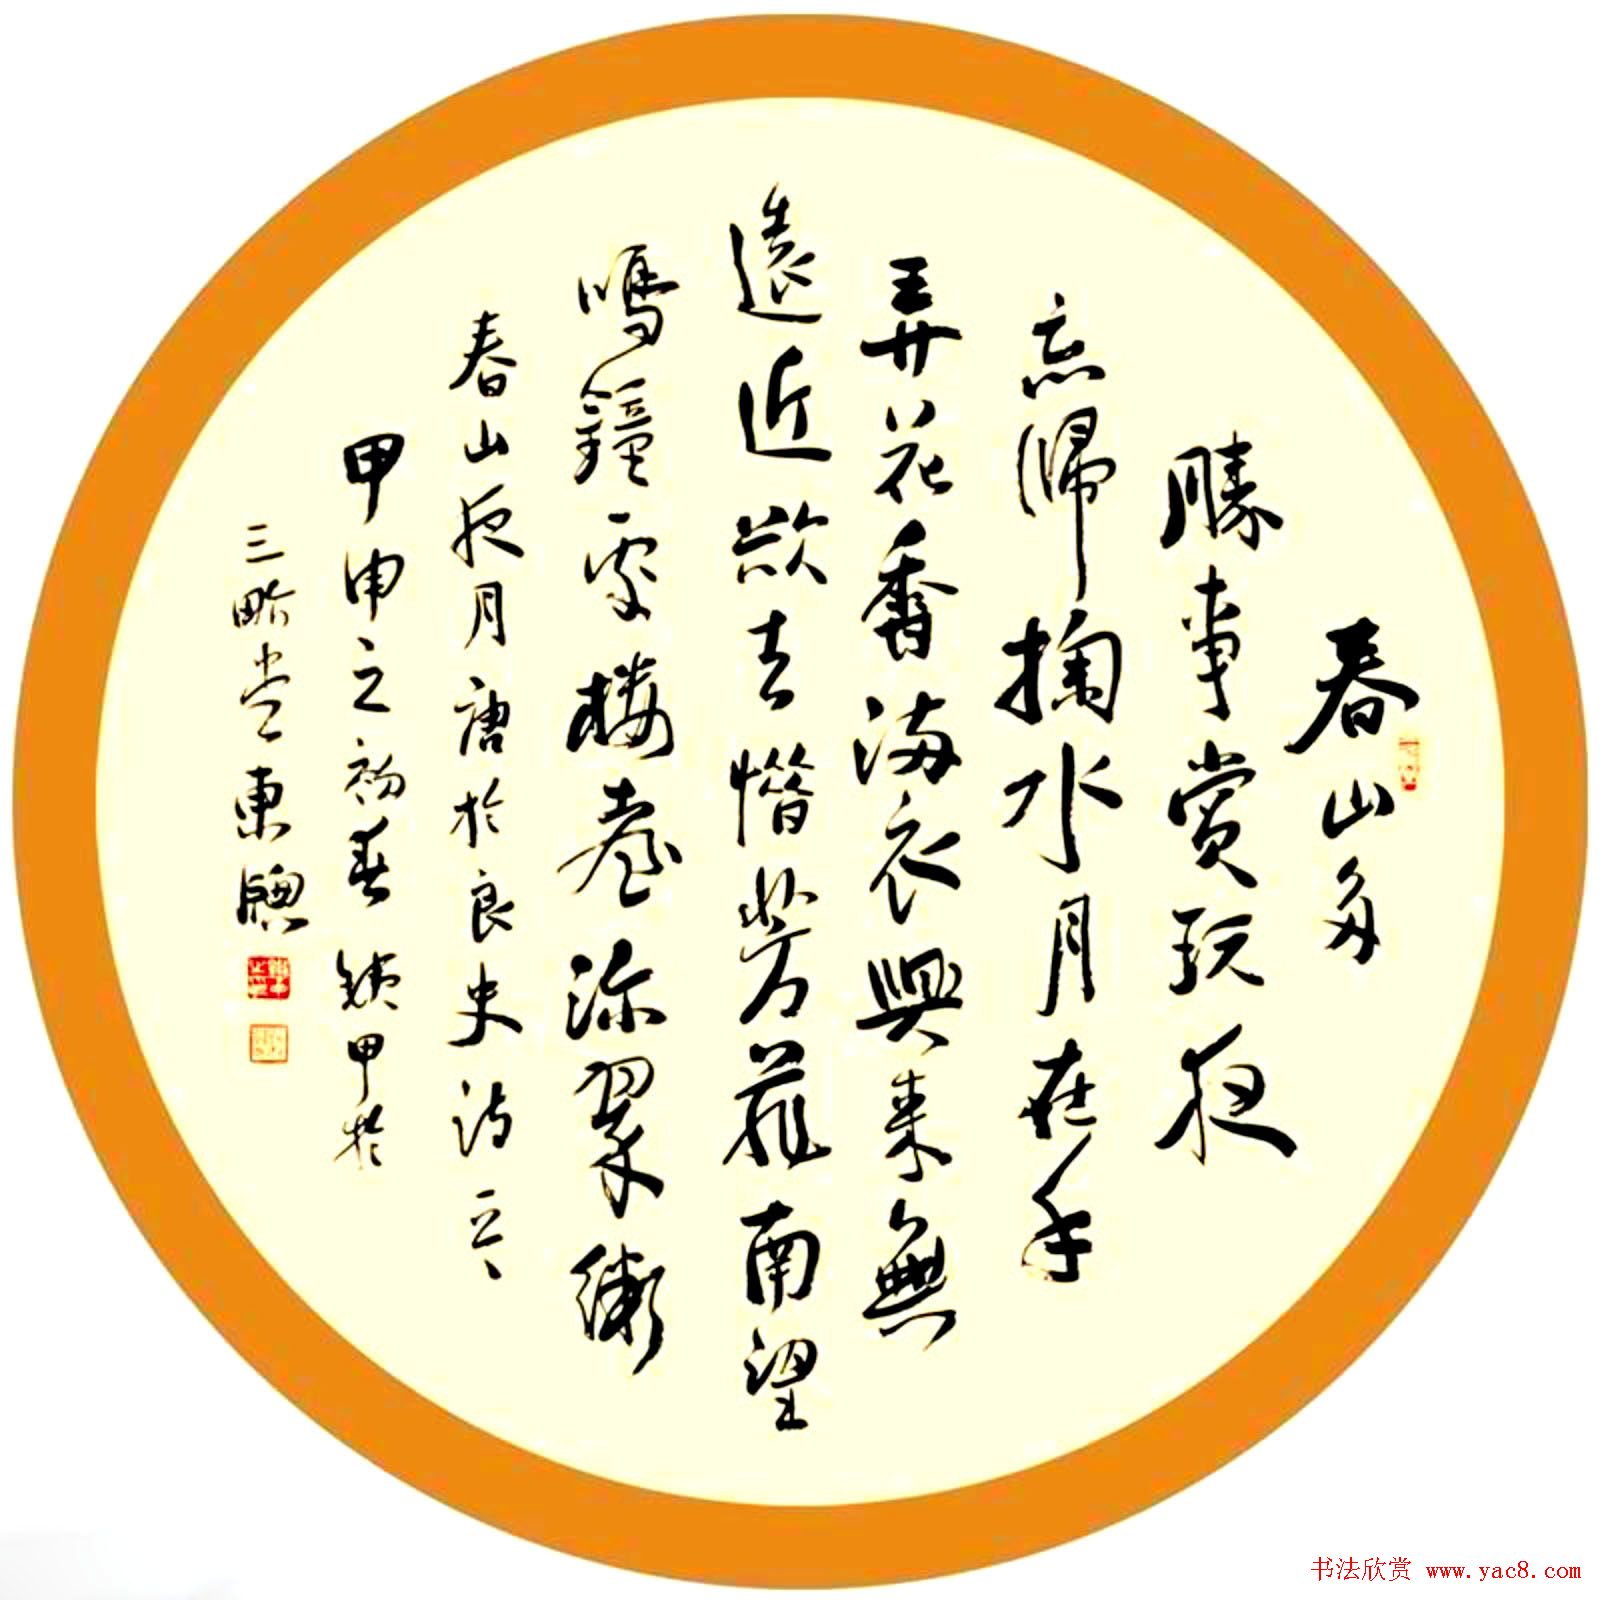 春山多
勝事賞玩夜
忘歸掬水月在手
弄花香滿衣興來無
遠近欲去惜芳菲南望
鳴鐘處樓臺深翠微
春山夜月唐於良史詩一首
甲申之初春鐵甲於
三略堂東牕
书法欣赏 www.yac8.com